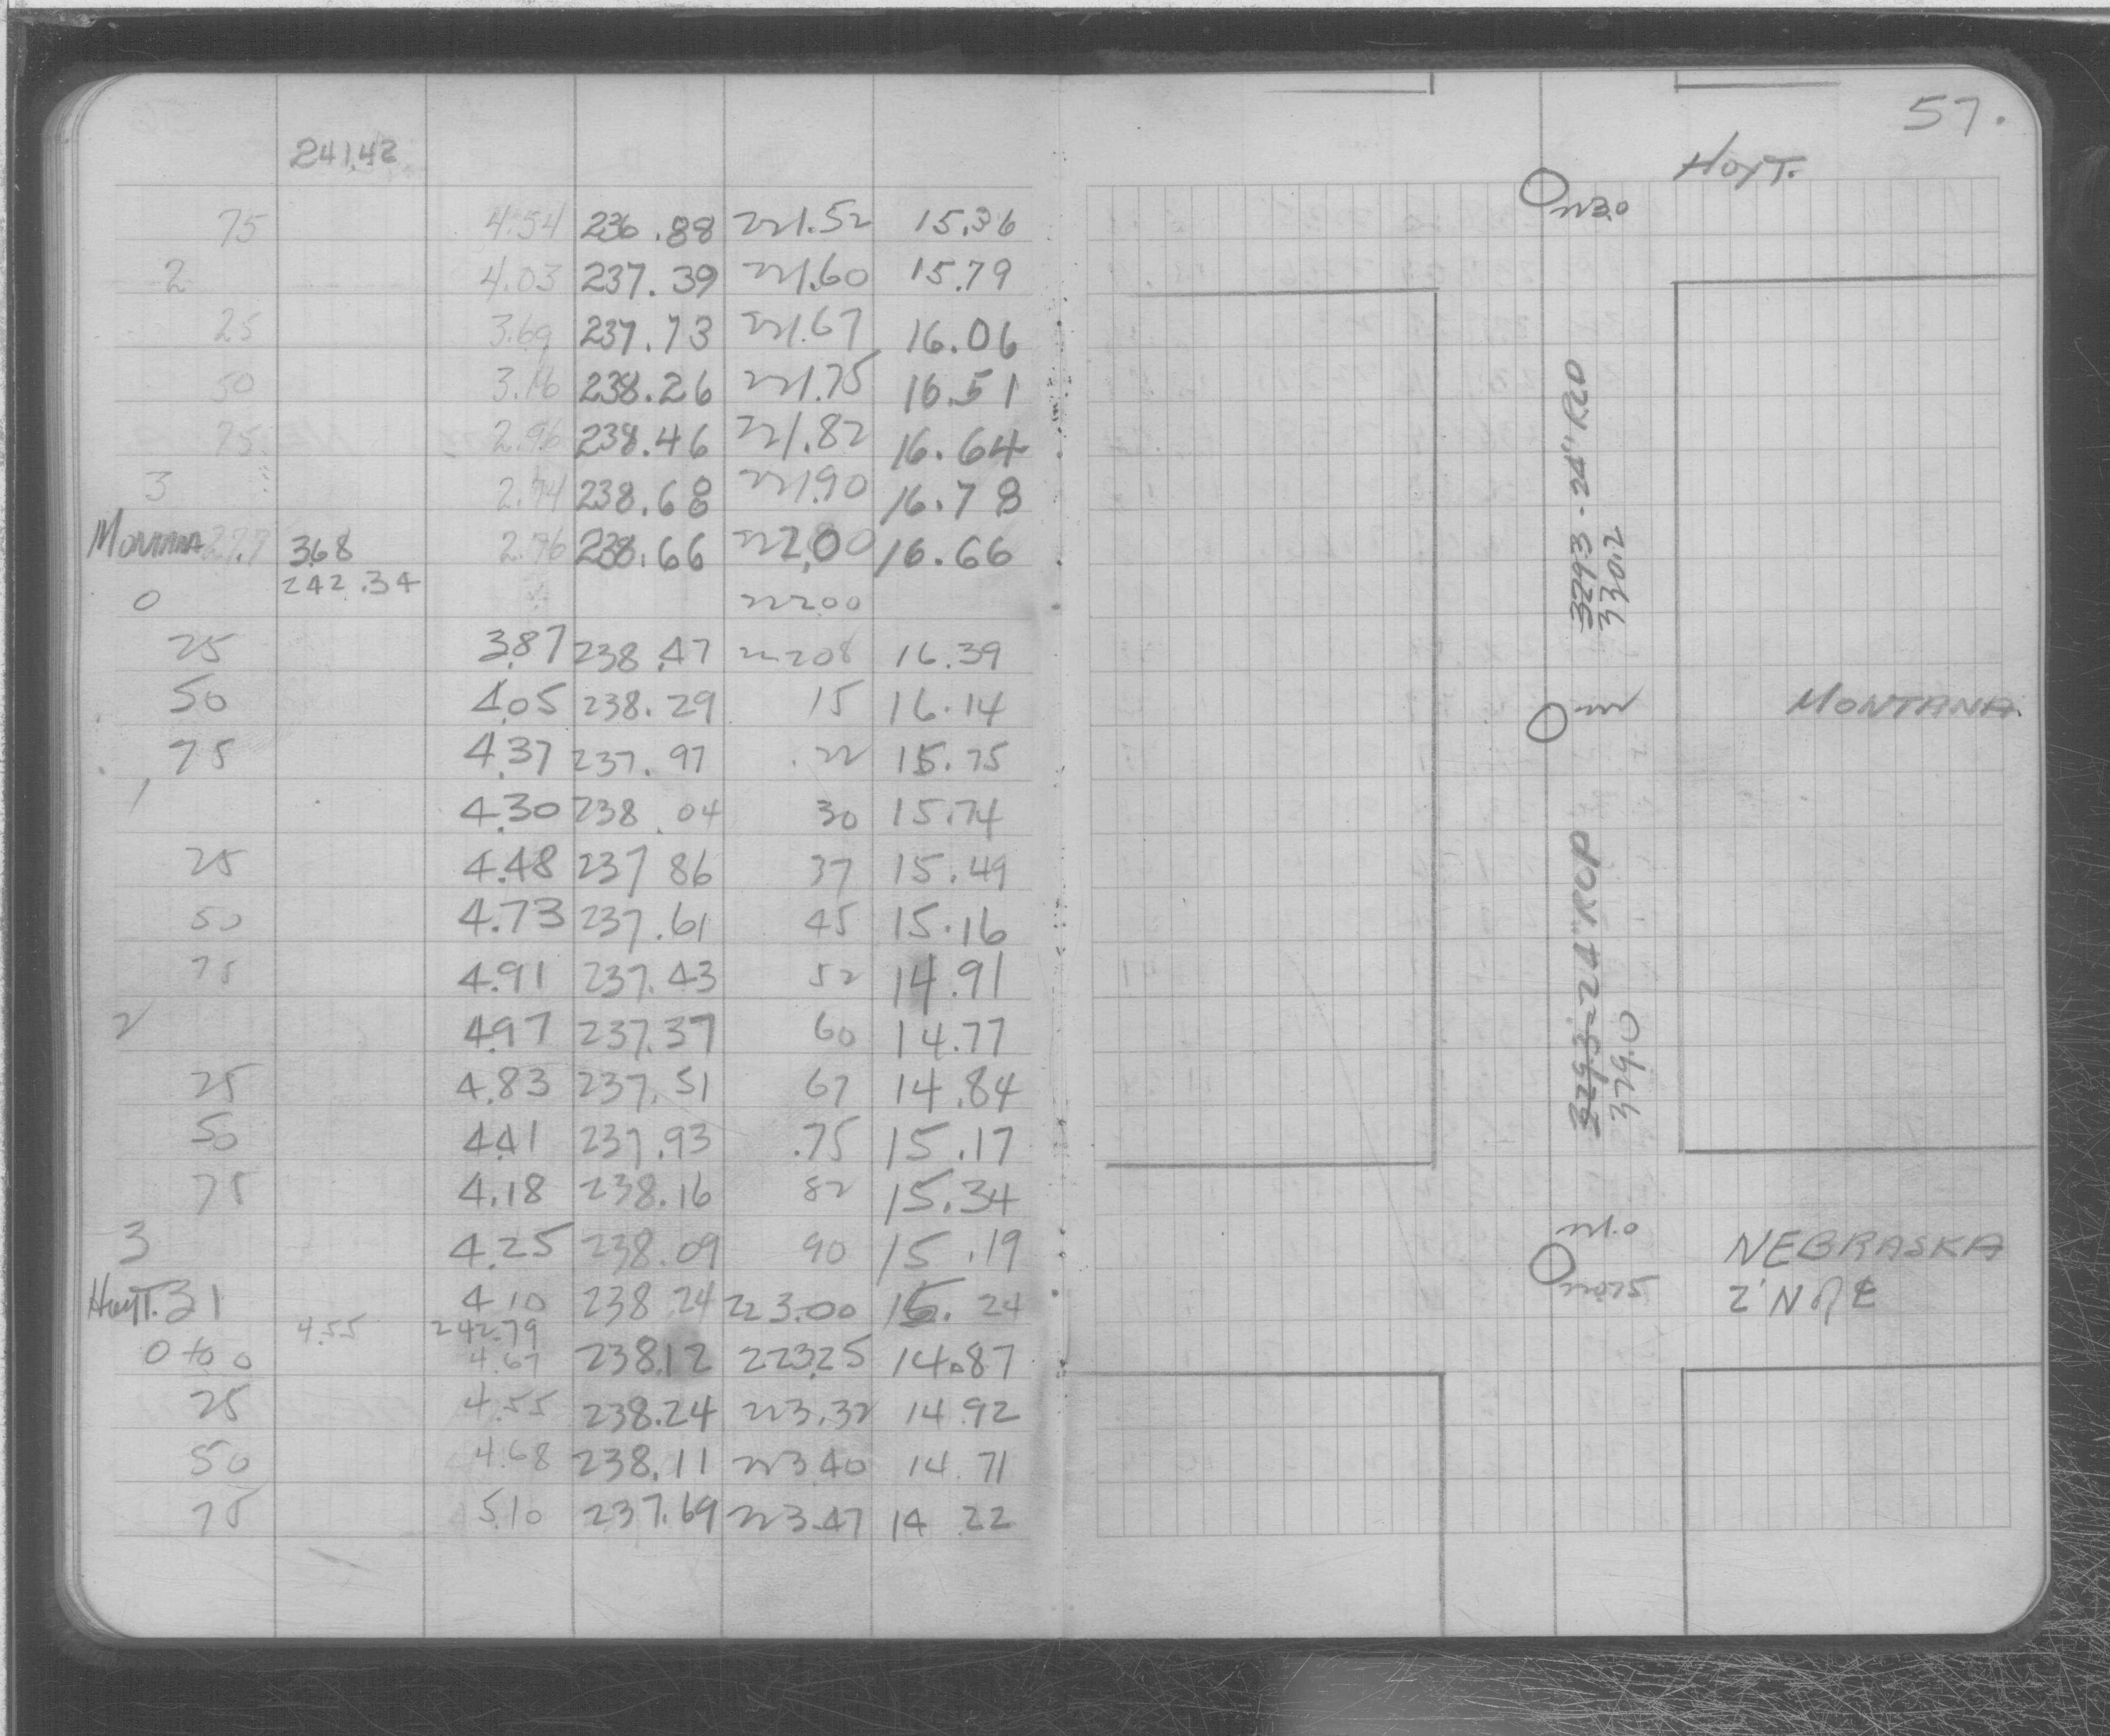 241.42
75 4.54 236.88 221.52 15.36
2 4.03 237.39 221.60 15.79
25 3.69 237.73 221.67 16.06
50 3.16 238.26 221.75 16.51
75 2.96 238.46 221.82 16.64
3 2.74 238.68 221.90 16.78
MONTANA 27.7 3.68 2.76 238.66 222.00 16.66
242.34
0 222.00
25 3.87 238.47 222.08 16.39
50 4.05 238.29 15 16.14
75 4.37 237.97 .22 15.75
1 4.30 238.04 30 15.74
25 4.48 237 86 37 15.49
50 4.73 237.61 45 15.16
75 4.91 237.43 52 14.91
2 4.97 237.37 60 14.77
25 4.83 237.51 67 14.84
50 4.41 237.93 .75 15.17
75 4.18 238.16 82 15.34
3 4.25 238.09 90 15.19
HOYT. 31 4.10 238 24 223.00 15. 24
4.55 242.79
0 to 0 4.67 238.12 223.25 14.87
25 4.55 238.24 223.32 14.92
50 4.68 238.11 223.40 14.71
75 5.10 237.69 223.47 14 22
57.
HOYT.
223.0
329.3 - 24"
330.2
222
MONTANA
329.3 - 24" RCP
329.0
221.0
220.75
NEBRASKA
2' N of ℄